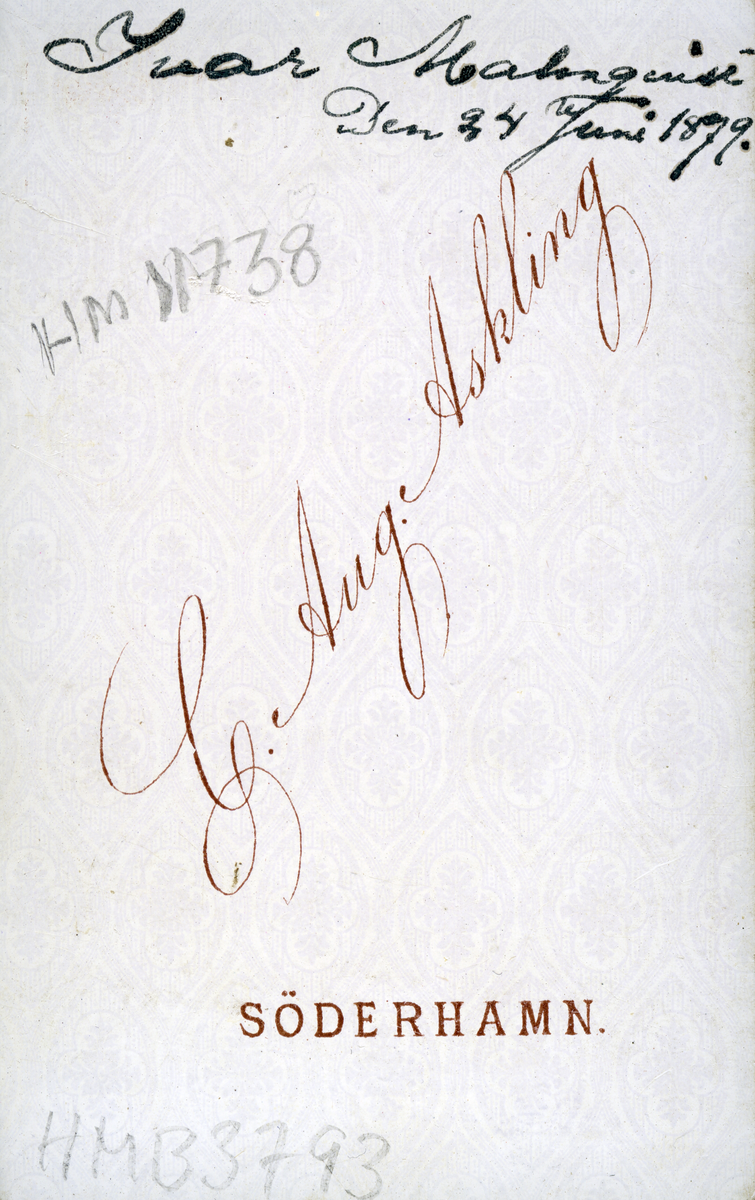 Ivar Malmqvist
Den 24 te Juni 1879.
11738
G. Aug. Askling
SÖDERHAMN.
HMB3793